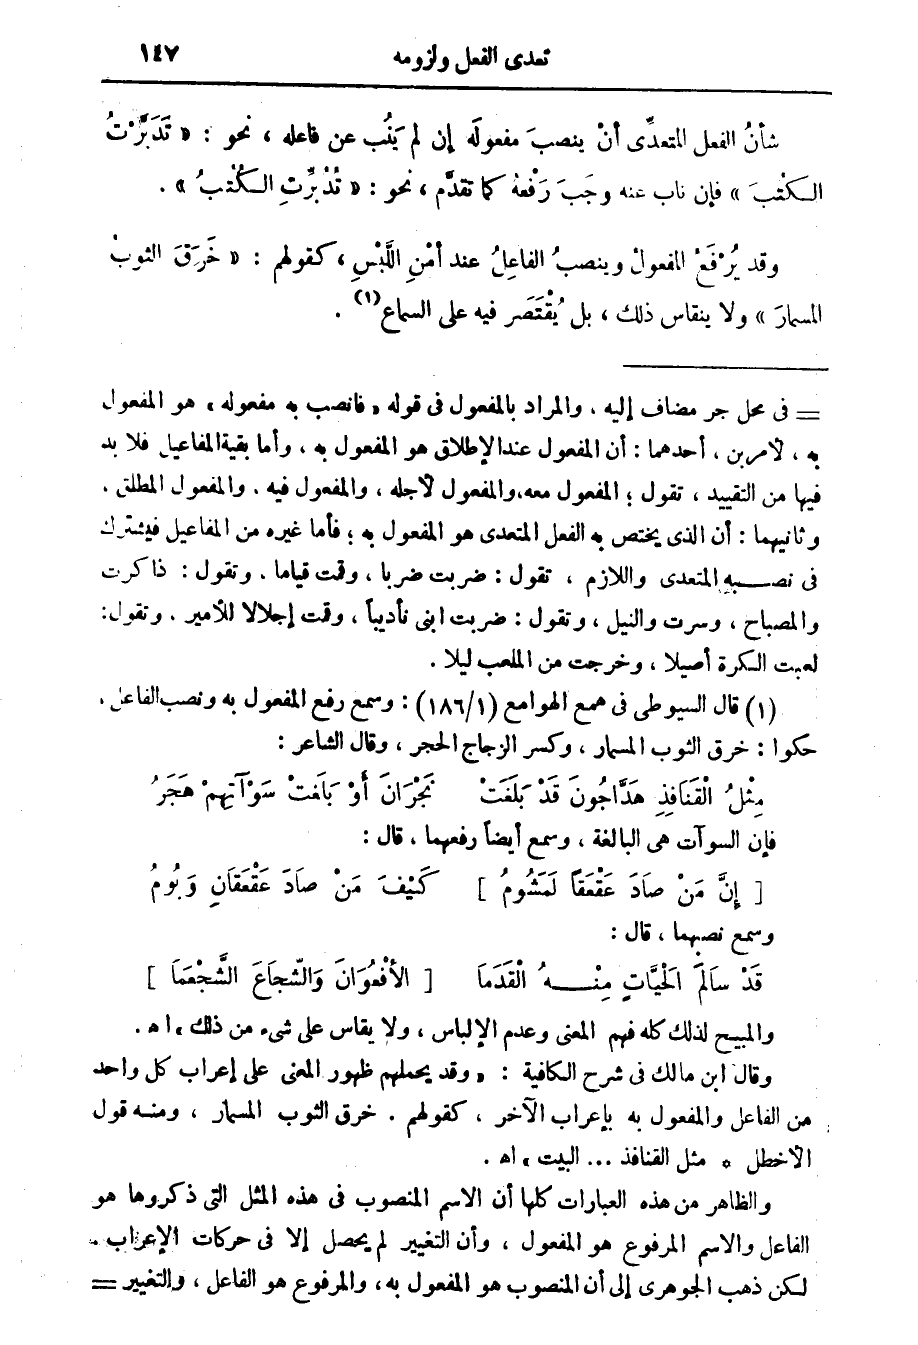 تعدى الفعل ولزومه ١٤٧
شأنُ الفعل المتعدِّى أنْ ينصبَ مفعولَه إن لم يَنُب عن فاعله ، نحو : « تَدَبَّرْتُ
الكُتْبَ » فإن ناب عنه وجَبَ رَفْعهُ كما تقدَّم ، نحو : « تُدُبِّرَتِ الكُتْبُ » .
وقد يُرْفَعُ المفعولُ وينصبُ الفاعِلُ عند أمْنِ اللَّبْسِ ، كقولهم : « خَرَقَ الثوبُ
المسمارَ » ولا ينقاس ذلك ، بل يُقْتَصَر فيه على السماع (١) .
= فى محل جر مضاف إليه ، والمراد بالمفعول فى قوله « فانصب به مفعوله » هو المفعول
به ، لأمرين ، أحدهما : أن المفعول عند الإطلاق هو المفعول به ، وأما بقية المفاعيل فلا بد
فيها من التقييد ، تقول ؛ المفعول معه، والمفعول لأجله ، والمفعول فيه . والمفعول المطلق .
وثانيهما : أن الذى يختص به الفعل المتعدى هو المفعول به ؛ فأما غيره من المفاعيل فيشترك
فى نصبه المتعدى واللازم ، تقول : ضربت ضربا ، وقمت قياما . وتقول : ذاكرت
والمصباح ، وسرت والنيل ، وتقول : ضربت ابنى تأديباً ، وقمت إجلالا للأمير . وتقول:
لعبت الكرة أصيلا ، وخرجت من الملعب ليلا .
(١) قال السيوطى فى همع الهوامع (١/١٨٦) : وسمع رفع المفعول به ونصب الفاعل ،
حكوا : خرق الثوب المسمار ، وكسر الزجاج الحجر ، وقال الشاعر :
مِثْلُ الْقَنَافِذِ هَدَّاجُونَ قَدْ بَلَغَتْ نَجْرَانَ أَوْ بَلَغتْ سَوْآتِهِمْ هَجَرُ
فإن السوآت هى البالغة ، وسمع أيضاً رفعهما ، قال :
[ إِنَّ مَنْ صَادَ عَقْعَقاً لَمَشُومُ ] كَيْفَ مَنْ صَادَ عَقْعَقَانِ وَبُومُ
وسمع نصبهما ، قال :
قَدْ سَالَمَ الْحَيَّاتِ مِنْهُ الْقَدَمَا [ الأُفْعُوَانَ وَالشُّجَاعَ الشَّجْعَمَا ]
والمبيح لذلك كله فهم المعنى وعدم الإلباس ، ولا يقاس على شىء من ذلك » اهـ .
وقال ابن مالك فى شرح الكافية : « وقد يحملهم ظهور المعنى على إعراب كل واحد
من الفاعل والمفعول به بإعراب الآخر ، كقولهم . خرق الثوب المسمار ، ومنه قول
الأخطل * مثل القنافذ ... البيت » اهـ .
والظاهر من هذه العبارات كلها أن الاسم المنصوب فى هذه المثل التى ذكروها هو
الفاعل والاسم المرفوع هو المفعول ، وأن التغيير لم يحصل إلا فى حركات الإعراب .
لكن ذهب الجوهرى إلى أن المنصوب هو المفعول به، والمرفوع هو الفاعل ، والتغيير =